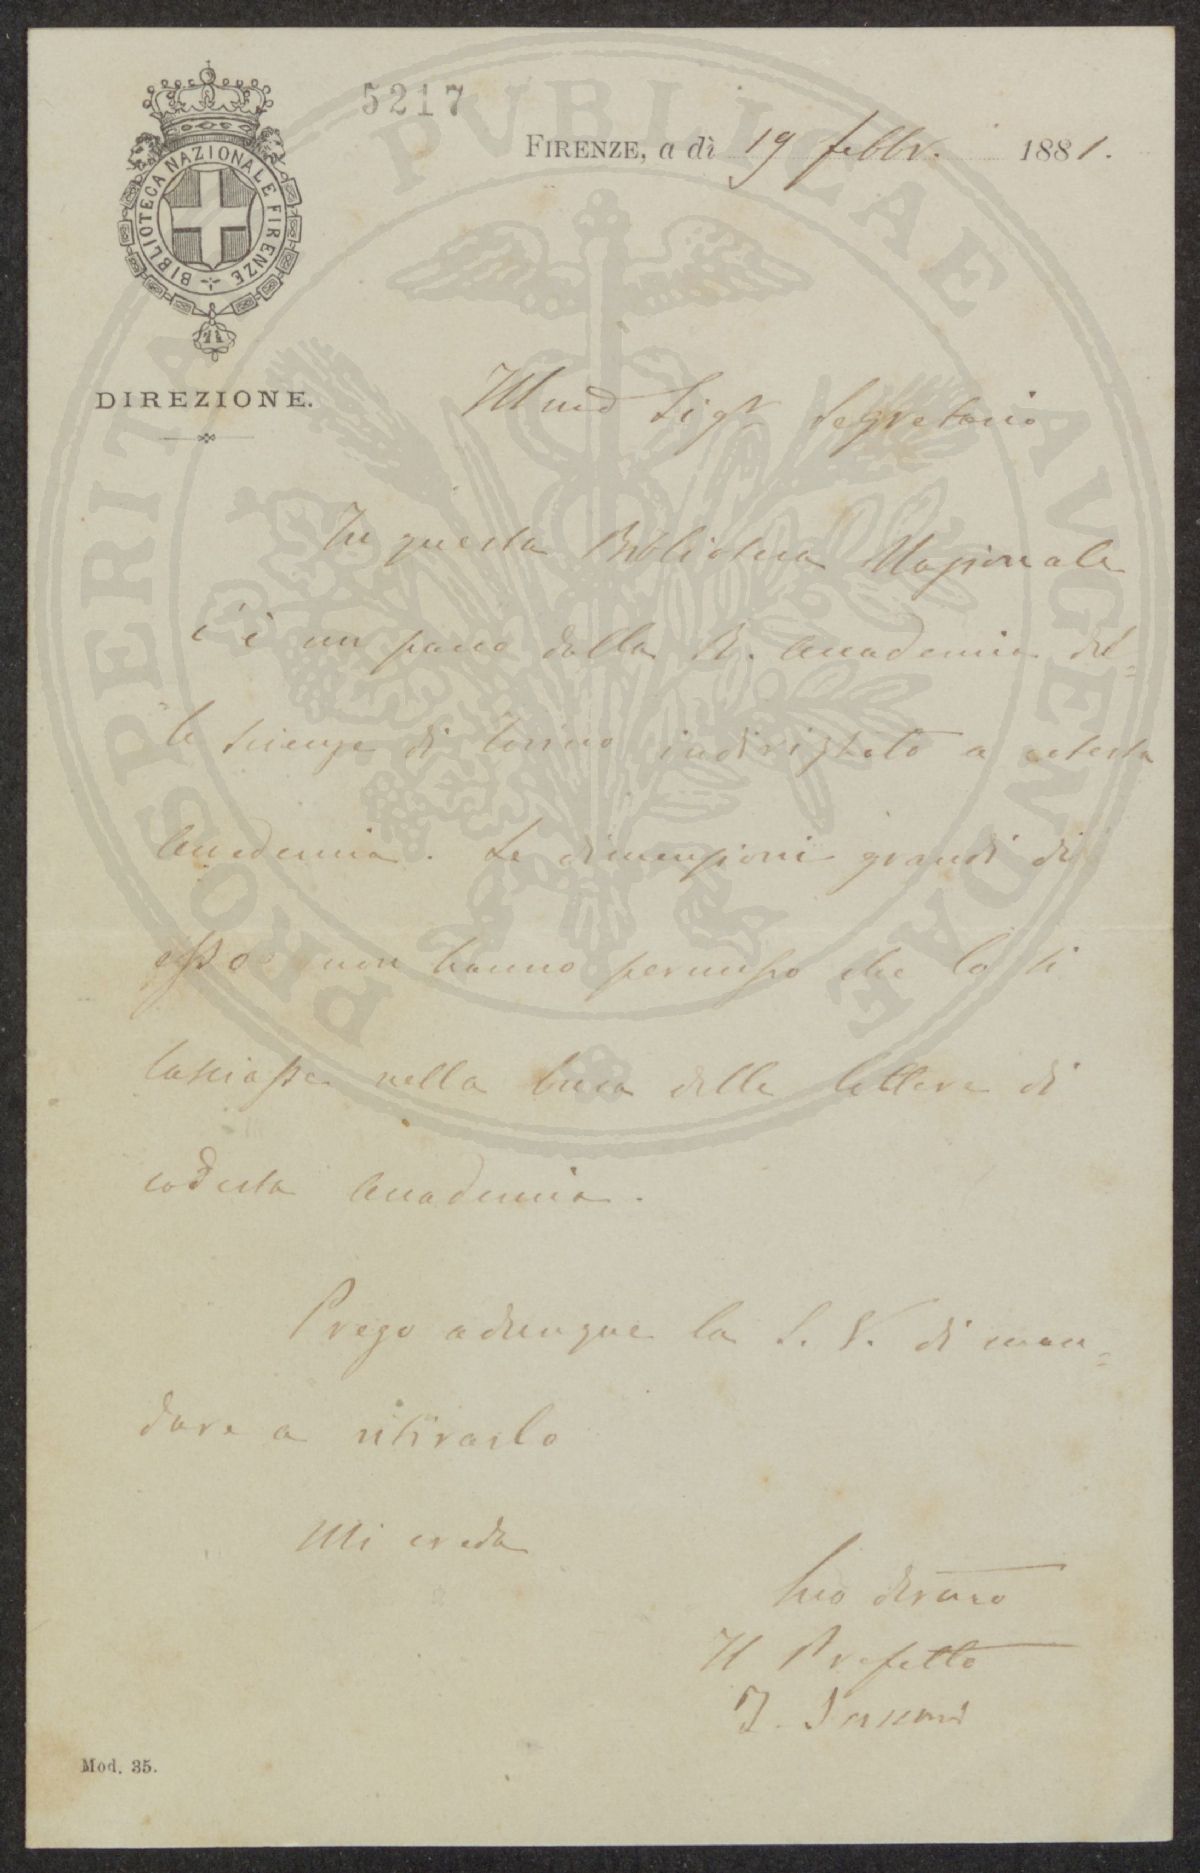 5217
BIBLIOTECA NAZIONALE FIRENZE
FIRENZE, a dì 19 febbr. 1881.
DIREZIONE.
PROSPERITATI PVBLICAE AVGENDAE
Illmo Sigr Segretario
In questa Biblioteca Nazionale
c'è un pacco dalla R. Accademia del=
le Scienze di Torino indirizzato a cotesta
Accademia. Le dimensioni grandi di
esso non hanno permesso che lo si
lasciasse nella buca delle lettere di
codesta Accademia.
Prego adunque la S. V. di man=
dare a ritirarlo
Mi creda
Suo devmo
Il Prefetto
Mod. 35.